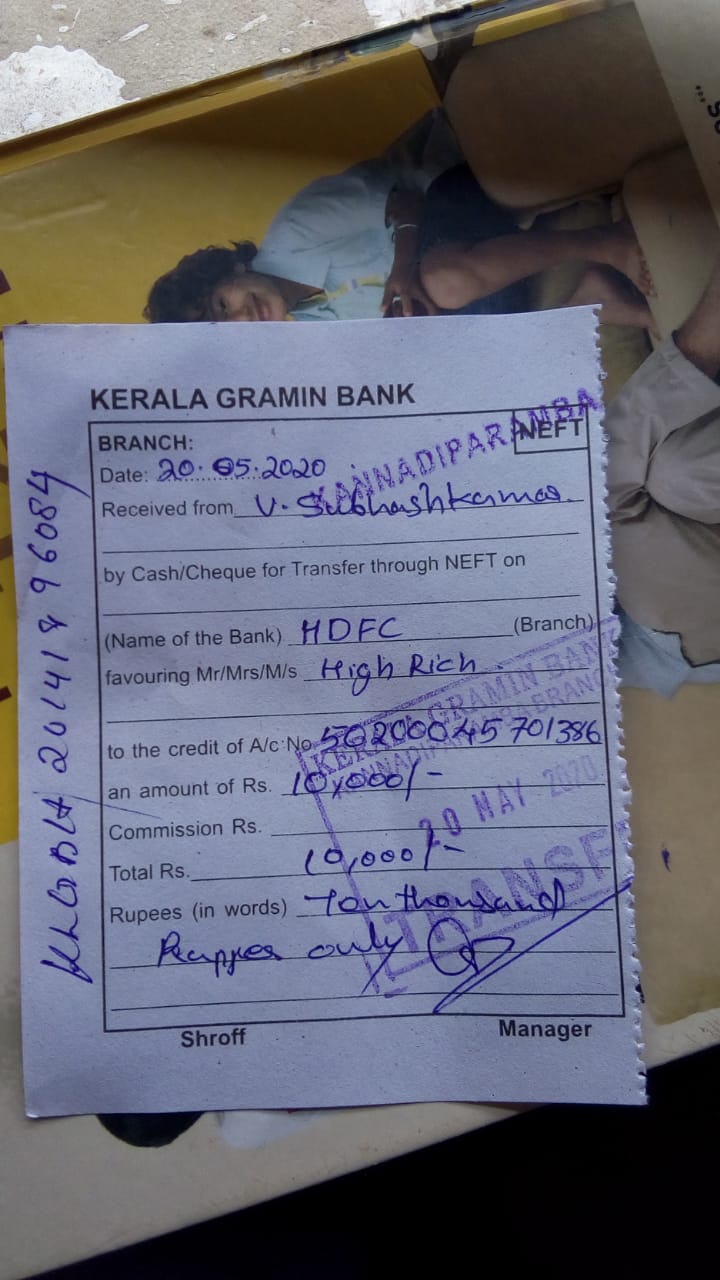 KERALA GRAMIN BANK
BRANCH: KANNADIPARAMBA
NEFT
Date: 20.05.2020
Received from V. Subhashkumar
by Cash/Cheque for Transfer through NEFT on
(Name of the Bank) HDFC (Branch)
favouring Mr/Mrs/M/s High Rich
to the credit of A/c No. 50200045701386
an amount of Rs. 10,000/-
Commission Rs.
Total Rs. 10,000/-
Rupees (in words) Ten thousand
Ruppes only
Shroff Manager
KERALA GRAMIN BANK
KANNADIPARAMBA BRANCH
20 MAY 2020
TRANSF